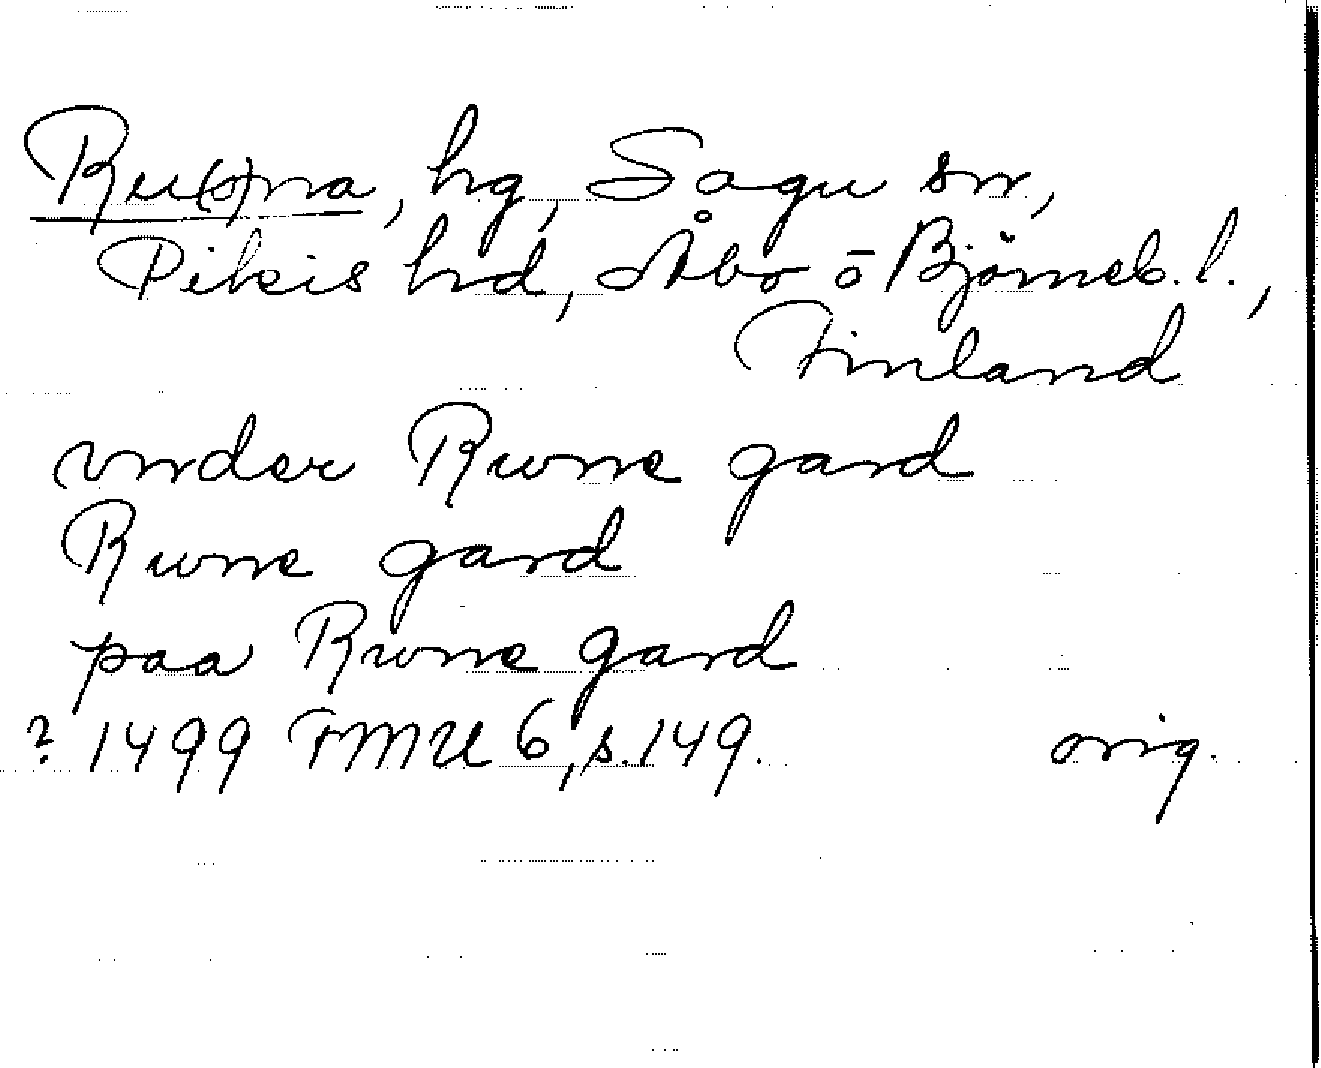 Ru(o)na, hg, Sagu sn,
Pikis hd, Åbo o Björneb. l.,
Finland
vnder Rwne gard
Rwne gard
paa Rwne gard
? 1499 FMU 6, s. 149. orig.